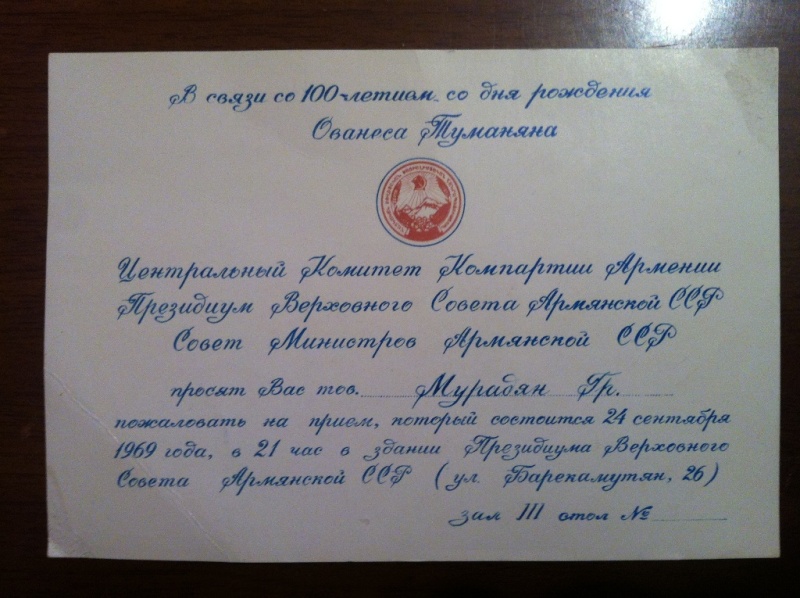 В связи со 100-летием со дня рождения
Ованеса Туманяна
Центральный Комитет Компартии Армении
Президиум Верховного Совета Армянской ССР
Совет Министров Армянской ССР
просят Вас тов. Мурадян Гр.
пожаловать на прием, который состоится 24 сентября
1969 года, в 21 час в здании Президиума Верховного
Совета Армянской ССР (ул. Барекамутян, 26)
зал III стол №